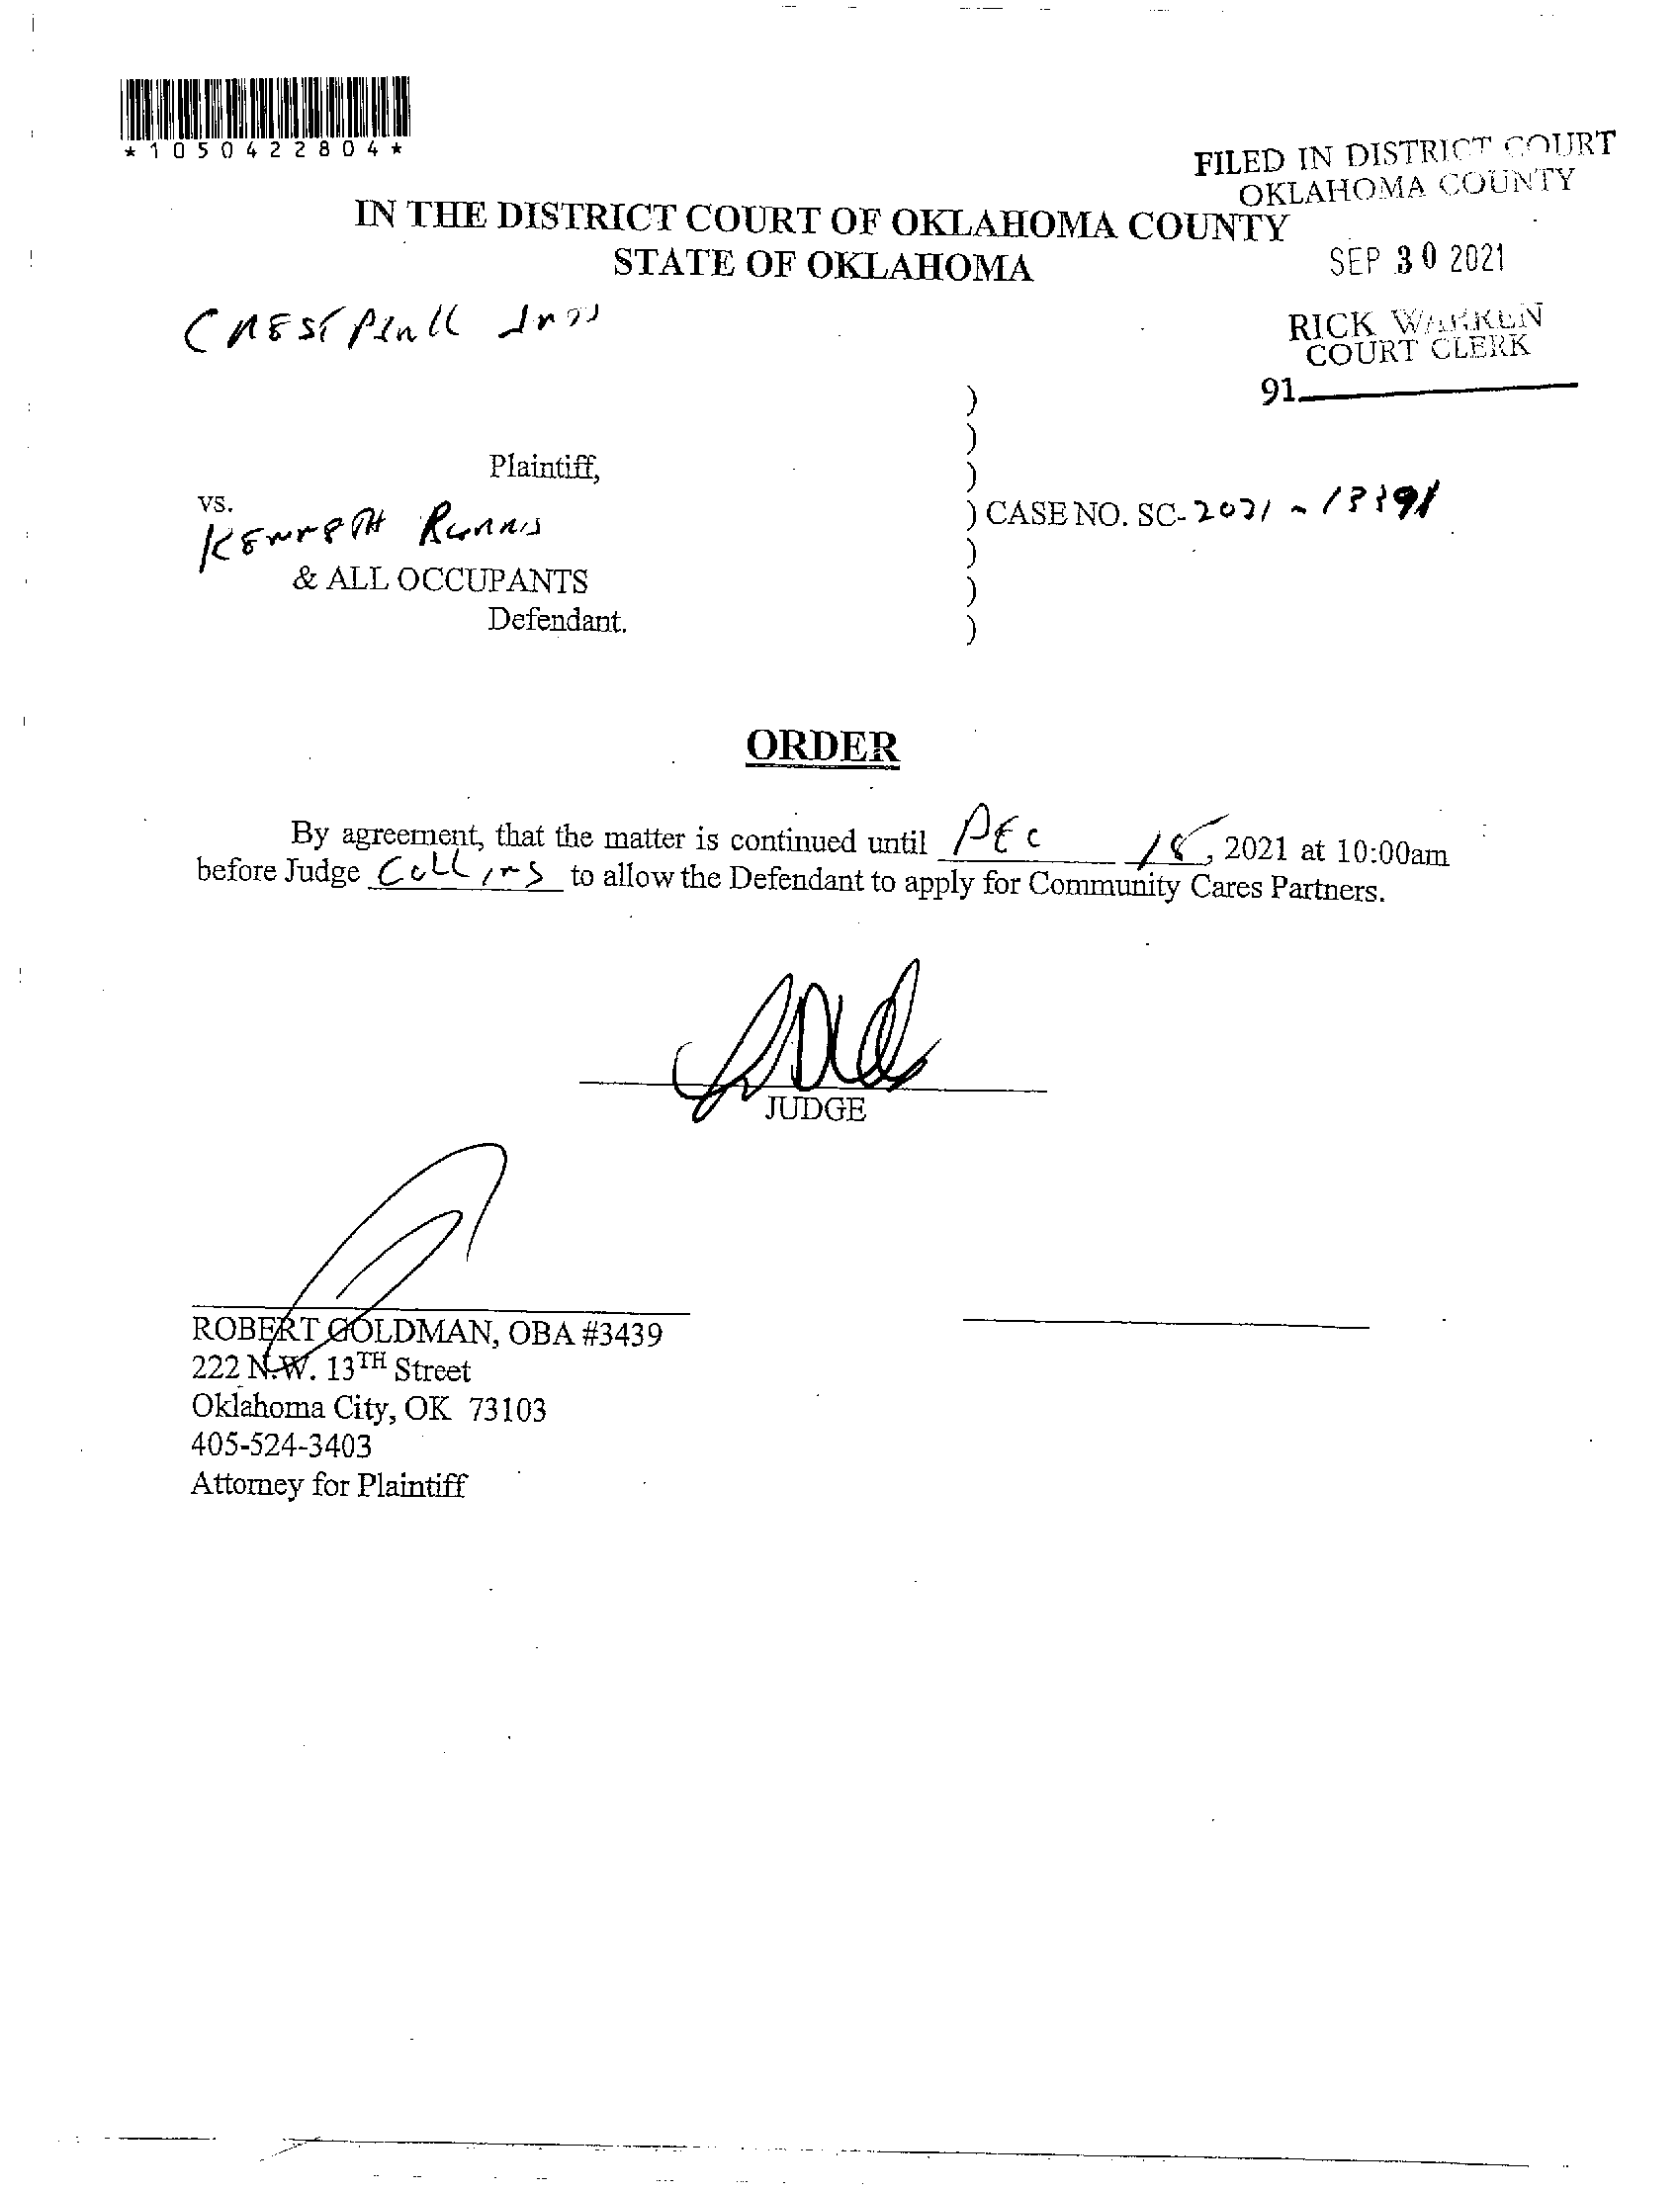 *1050422804*
FILED IN DISTRICT COURT
OKLAHOMA COUNTY
IN THE DISTRICT COURT OF OKLAHOMA COUNTY
STATE OF OKLAHOMA
SEP 30 2021
RICK WARREN
COURT CLERK
91
)
)
Plaintiff, )
vs. ) CASE NO. SC-2021-
KENNETH
)
& ALL OCCUPANTS )
Defendant. )
ORDER
By agreement, that the matter is continued until DEC , 2021 at 10:00am
before Judge COLLINS to allow the Defendant to apply for Community Cares Partners.
JUDGE
ROBERT GOLDMAN, OBA #3439
222 N.W. 13TH Street
Oklahoma City, OK 73103
405-524-3403
Attorney for Plaintiff